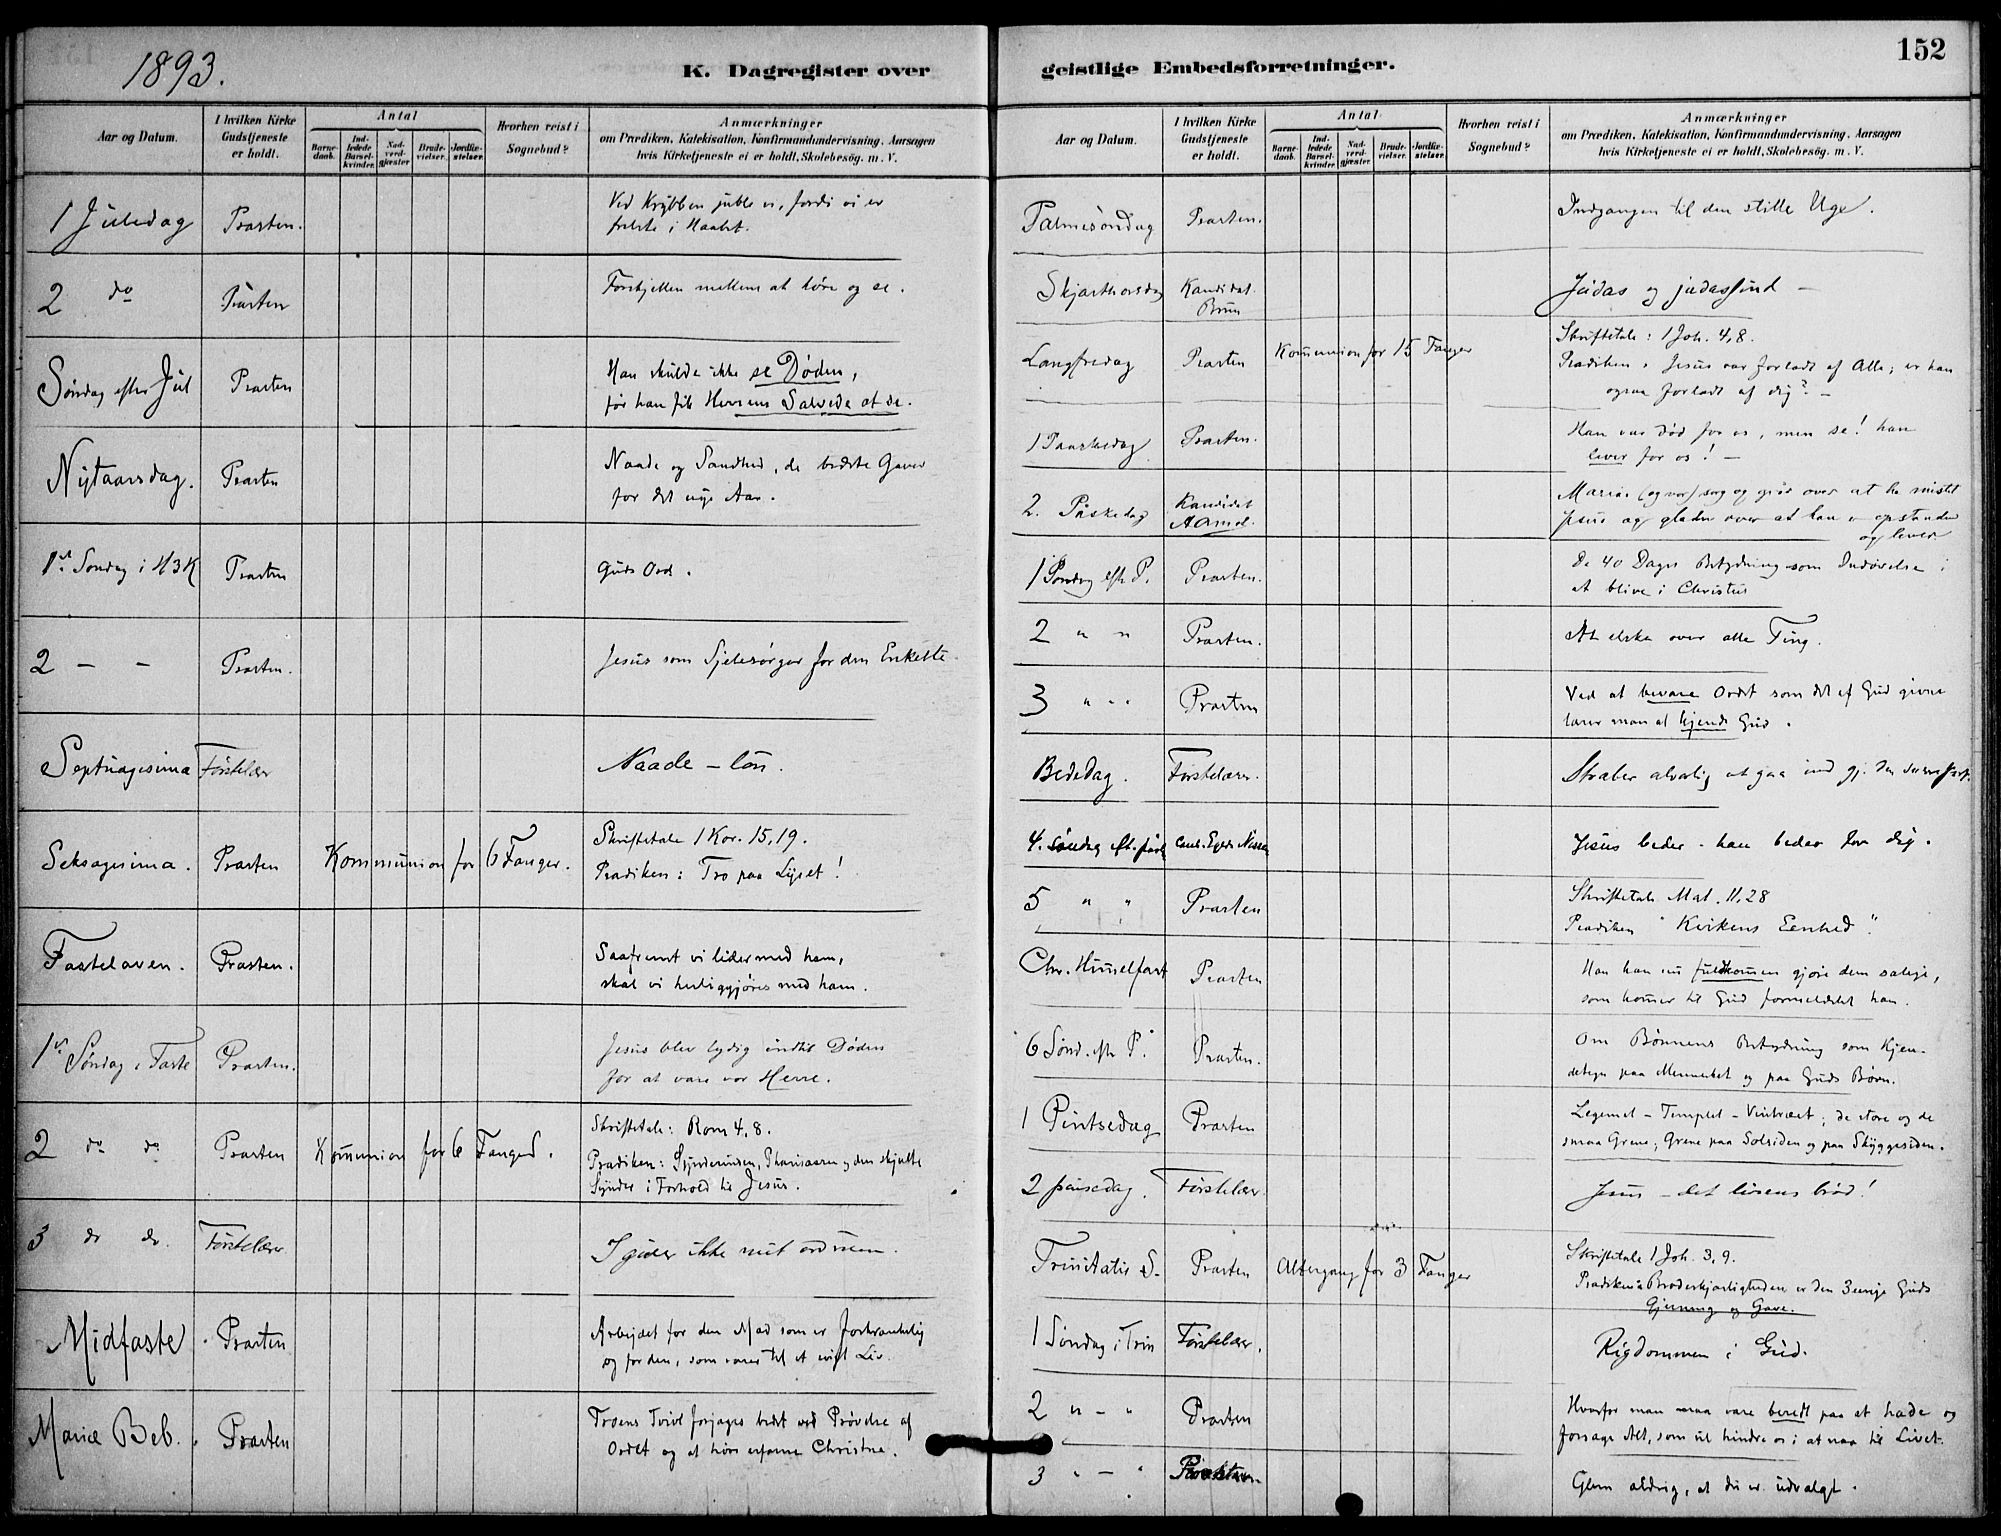 1893.
K. Dagregister over
Aar og Datum.
I hvilken Kirke Gudstjeneste er holdt.
Antal
Barnedaab.
Indledede Barselkvinder.
Nadverdgjæster
Brudevielser.
Jordfæstelser.
Hvorhen reist i Sognebud?
Anmærkninger
om Prædiken, Katekisation, Konfirmandundervisning, Aarsagen
hvis Kirketjeneste ei er holdt, Skolebesøg. m. V.
1 Juledag Præsten. Ved Krybben juble vi, fordi vi er
frelste i Haabet.
2 do Præsten Forskjellen mellem at høre og se.
Søndag efter Jul Præsten Han skulde ikke se Døden,
før han fik Herrens Salvede at se.
Nytaarsdag. Præsten Naade og Sandhed, de bedste Gaver
for det nye Aar.
1ste Søndag i H3K Præsten Guds Ord.
2 — — Præsten. Jesus som Sjelesørger for den Enkelte.
Septuagesima Førstelær Naade – løn.
Seksagesima. Præsten Kommunion for 6 Fanger. Skriftetale 1 Kor. 15,19.
Prædiken: Tro paa Lyset!
Fastelaven. Præsten. Saafremt vi lider med ham,
skal vi herliggjøres med ham.
1ste Søndag i Faste Præsten. Jesus blev lydig indtil Døden
for at være vor Herre.
2 do do Præsten Kommunion for 6 Fanger. Skriftetale: Rom 4,8.
Prædiken: Synderinden, Pharisæeren og den skjulte
Synder i Forhold til Jesus.
3 do do. Førstelær I gider ikke mit ord
Midfaste Præsten Arbejdet for den Mad som er forkrænkelig
og for den, som varer til et evigt Liv.
Mariæ Beb. Præsten Troens Tvivl forjages bedst ved Prøvelse af
Ordet og at høre erfarne Christne.
152
geistlige Embedsforretninger.
Aar og Datum.
I hvilken Kirke Gudstjeneste er holdt.
Antal
Barnedaab.
Indledede Barselkvinder.
Nadverdgjæster.
Brudevielser.
Jordfæstelser.
Hvorhen reist i Sognebud?
Anmærkninger
om Prædiken, Katekisation, Konfirmandundervisning, Aarsagen
hvis Kirketjeneste ei er holdt, Skolebesøg. m. V.
Palmesøndag Præsten. Indgangen til den stille Uge.
Skjærthorsdag Kandidat Brun Judas og judassind —
Langfredag Præsten Kommunion for 15 Fanger Skriftetale: 1 Joh. 4,8.
Prædiken: Jesus var forladt af Alle; er han
ogsaa forladt af dig? —
1 Paaskedag Præsten. Han var død for os, men se! han
lever for os! —
2. Påskedag Kandidat Aamod. Marias (og vor) sorg over at ha mistet
jesus og glæden over at han er opstanden
og lever
1 Søndag eft P. Præsten. De 40 Dages Betydning som Indøvelse i
at blive i Christus
2 " " Præsten. At elske over alle Ting.
3 " " Præsten Ved at bevare Ordet som det af Gud givne
lærer man at kjende Gud.
Bededag. Førstelærer. Stræber alvorlig at gaa ind gj. den snevre port.
4. Søndag eft. påske cand. Egede Nissen Jesus beder – han beder for dig.
5 " " Præsten Skriftetale Mat. 11,28
Prædiken "Kirkens Eenhed".
Chr. Himmelfart Præsten Han kan nu fuldkommen gjøre dem salige,
som kommer til Gud formedelst ham.
6 Sønd. eft P. Præsten. Om Bønnens Betydning som Kjendetegn
paa Mennesket og paa Guds Børn.
1 Pintsedag Præsten Legemet – Templet – Vintræet; de store og de
smaa Grene; Grene paa Solsiden og paa Skyggesiden.
2 pinsedag. Førstelær. Jesus – det livsens brød!
Trinitatis S. Præsten Altergang for 3 Fanger Skriftetale 1 Joh. 3,9.
Prædiken: Broderkjærligheden er den 3enige Guds
Gjerning og Gave.
1 Søndag i Trin Førstelær. Rigdommen i Gud.
2 " – " Præsten Hvorfor man maa være beredt paa at hade og
forsage Alt, som vil hindre os i at naa til Livet.
3 " – " Præsten Glem aldrig, at du er udvalgt.